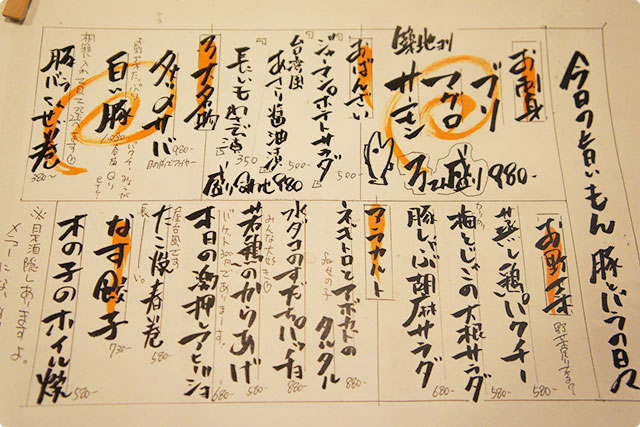 今日の旨いもん 豚とバラの日々
お刺身
築地ヨリ
ブリ
マグロ
サーモン
三点盛り 980-
おばんざい
ジャーマンポテトサラダ
500-
台湾風
あさり醤油漬
500-
長いもわさび漬
350
盛り合わせ 980
三大名物
ダダのサバ
980-
白い豚
1,080-
豚バラなぜ巻
380-
お野菜
蒸し鶏パクチー
580-
カリカリ
梅とじゃこの大根サラダ
580-
豚しゃぶ胡麻サラダ
680-
アラカルト
ネギトロとアボカドの
タルタル
880-
水ダコのすだちパッチョ
880-
みんな大好き
若鶏のからあげ
580-
バケット300円であります。
本日の激押しアヒージョ
680-
屋台風です
たこ焼春巻
580-
なす餃子
730-
木の子のホイル焼
580-
※日本酒隠しありますよ。